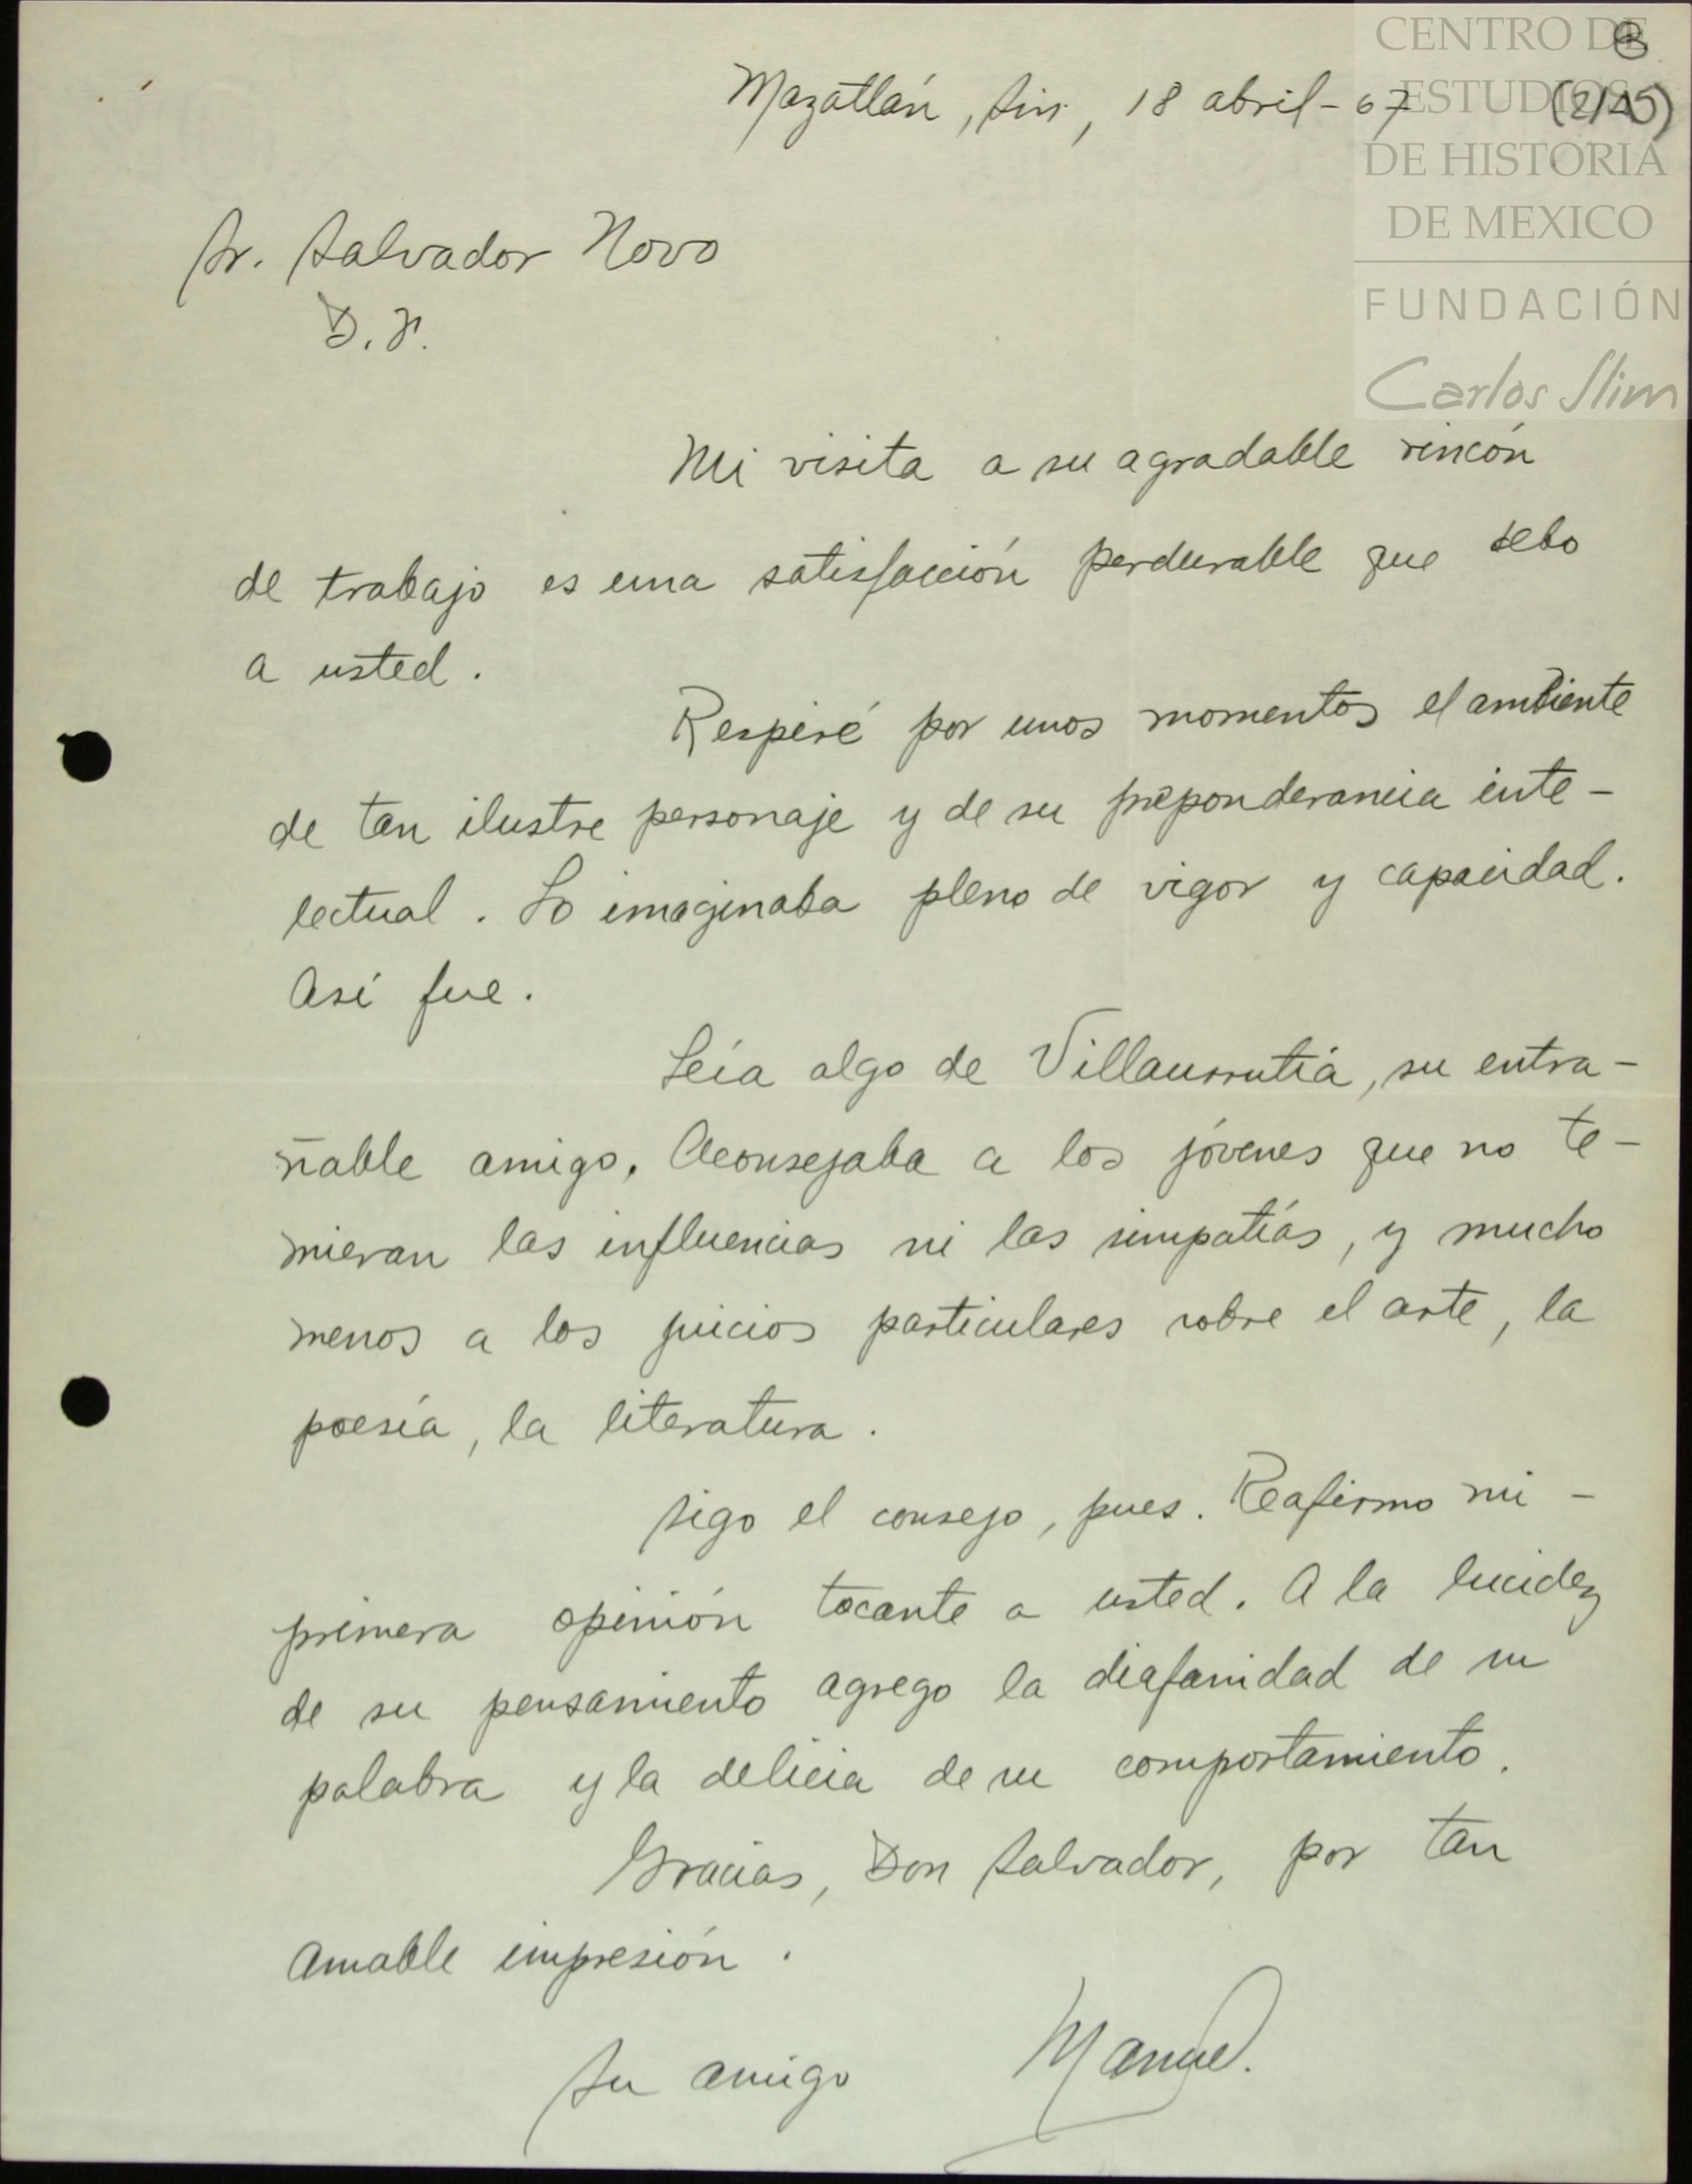 CENTRO DE
ESTUDIOS
DE HISTORIA
DE MEXICO
FUNDACIÓN
Carlos Slim
Mazatlán, Sin, 18 abril - 67
Sr. Salvador Novo
D.F.
Mi visita a su agradable rincón
de trabajo es una satisfacción perdurable que debo
a usted.
Respiré por unos momentos el ambiente
de tan ilustre personaje y de su preponderancia inte-
lectual. Lo imaginaba pleno de vigor y capacidad.
Así fue.
Leía algo de Villaurrutia, su entra-
ñable amigo. Aconsejaba a los jóvenes que no te-
mieran las influencias ni las simpatías, y mucho
menos a los juicios particulares sobre el arte, la
poesía, la literatura.
Sigo el consejo, pues. Reafirmo mi -
primera opinión tocante a usted. A la lucidez
de su pensamiento agrego la diafanidad de su
palabra y la delicia de su comportamiento.
Gracias, Don Salvador, por tan
amable impresión.
Su amigo Manuel.